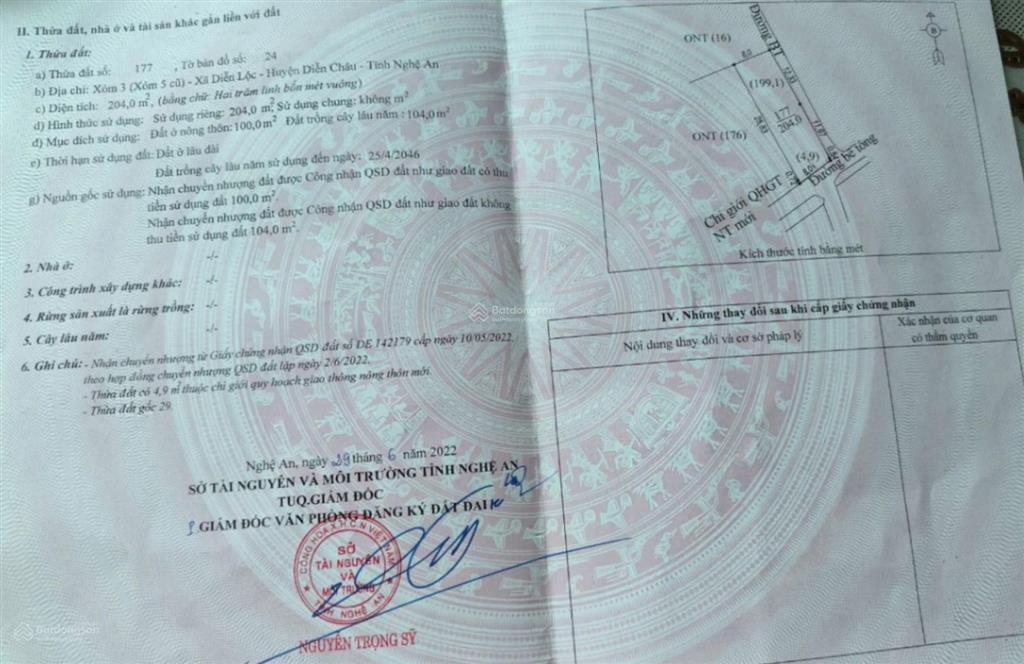 II. Thửa đất, nhà ở và tài sản khác gắn liền với đất
1. Thửa đất:
a) Thửa đất số: 177 , Tờ bản đồ số: 24
b) Địa chỉ: Xóm 3 (Xóm 5 cũ) - Xã Diễn Lộc - Huyện Diễn Châu - Tỉnh Nghệ An
c) Diện tích: 204,0 m², (bằng chữ: Hai trăm linh bốn mét vuông)
d) Hình thức sử dụng: Sử dụng riêng: 204,0 m²; Sử dụng chung: không m²
đ) Mục đích sử dụng: Đất ở nông thôn: 100,0 m² Đất trồng cây lâu năm : 104,0 m²
e) Thời hạn sử dụng đất: Đất ở lâu dài
Đất trồng cây lâu năm sử dụng đến ngày: 25/4/2046
g) Nguồn gốc sử dụng: Nhận chuyển nhượng đất được Công nhận QSD đất như giao đất có thu
tiền sử dụng đất 100,0 m².
Nhận chuyển nhượng đất được Công nhận QSD đất như giao đất không
thu tiền sử dụng đất 104,0 m².
2. Nhà ở: -/-
3. Công trình xây dựng khác: -/-
4. Rừng sản xuất là rừng trồng: -/-
5. Cây lâu năm: -/-
6. Ghi chú: - Nhận chuyển nhượng từ Giấy chứng nhận QSD đất số DE 142179 cấp ngày 10/05/2022.
theo hợp đồng chuyển nhượng QSD đất lập ngày 2/6/2022.
- Thửa đất có 4,9 m² thuộc chỉ giới quy hoạch giao thông nông thôn mới.
- Thửa đất gốc 29.
Nghệ An, ngày 29 tháng 6 năm 2022
SỞ TÀI NGUYÊN VÀ MÔI TRƯỜNG TỈNH NGHỆ AN
TUQ.GIÁM ĐỐC
GIÁM ĐỐC VĂN PHÒNG ĐĂNG KÝ ĐẤT ĐAI
CỘNG HÒA X.H.C.N VIỆT NAM
SỞ
TÀI NGUYÊN
VÀ
MÔI TRƯỜNG
TỈNH NGHỆ AN
NGUYỄN TRỌNG SỸ
B
ONT (16)
Đường BT
8,0
(199,1)
177
204,0
ONT (176)
(4,9)
Đường bê tông
Chỉ giới QHGT
NT mới
Kích thước tính bằng mét
IV. Những thay đổi sau khi cấp giấy chứng nhận
Nội dung thay đổi và cơ sở pháp lý
Xác nhận của cơ quan
có thẩm quyền
Batdongsan
Batdongsan
Batdongsan